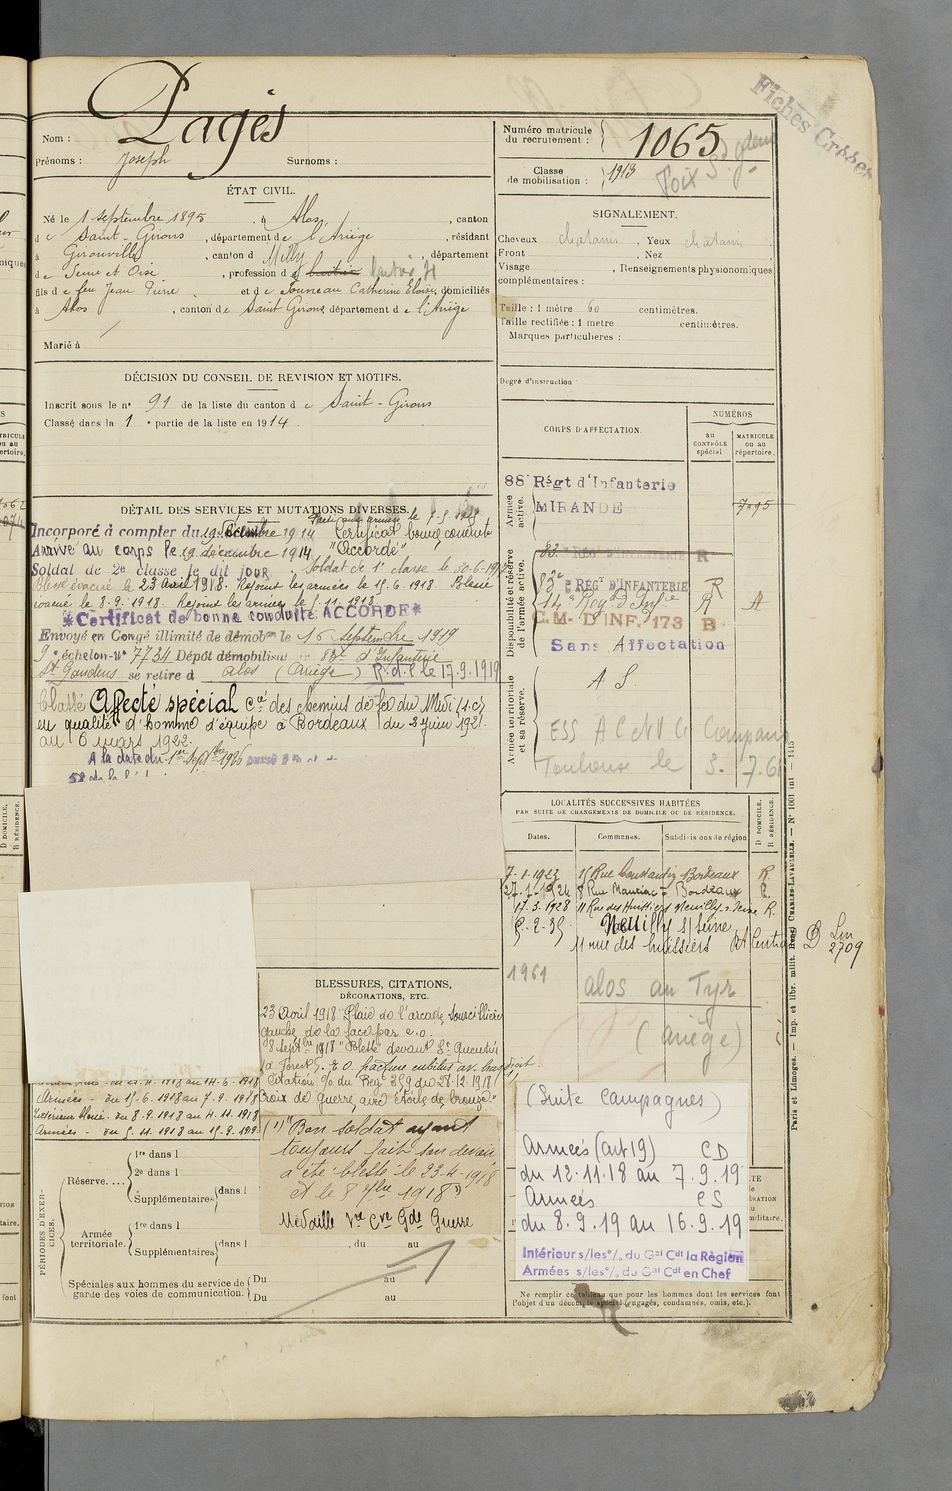 Fiches Grosses
Nom : Pagès
Prénoms : Joseph Surnoms :
ÉTAT CIVIL.
Né le 1 septembre 1895, à Alos, canton
de Saint-Girons, département de l'Ariège, résidant
à Gironville, canton de Milly, département
de Seine et Oise, profession d
fils de feu Jean Pierre et de Souneau Catherine Eloïse, domiciliés
à Alos, canton de Saint Girons, département de l'Ariège
Marié à
DÉCISION DU CONSEIL DE REVISION ET MOTIFS.
Inscrit sous le n° 91 de la liste du canton de Saint-Girons
Classé dans la 1e partie de la liste en 1914.
DÉTAIL DES SERVICES ET MUTATIONS DIVERSES.
Parti aux armées le 7-5
Incorporé à compter du 19 décembre 1914 Certificat bonne conduite
Arrivé au corps le 19 décembre 1914 "Accordé"
Soldat de 2e classe le dit jour. Soldat de 1e classe le 30-6-19
Blessé évacué le 23 Avril 1918. Rejoint les armées le 15.6.1918. Blessé
évacué le 8.9.1918. Rejoint les armées le 5.11.1918
*Certificat de bonne conduite ACCORDÉ*
Envoyé en Congé illimité de démobon le 16 septembre 1919
9e échelon-N° 7734 Dépôt démobilisateur 83e d'Infanterie
St Gaudens se retire d Alos (Ariège) R.d.l le 17.9.1919
Classé Affecté spécial Cie des chemins de fer du Midi (s.c.)
en qualité d'homme d'équipe à Bordeaux du 2 Juin 192
au 6 mars 1922.
A la date du 1er Septbre 1926 passé
BLESSURES, CITATIONS,
DÉCORATIONS, ETC.
23 Avril 1918 "Plaie de l'arcade sourcillière
gauche de la face par e.o.
8 Septbre 1918 "Blessé" devant St Quentin
(à Forest). E O fracture cubitus av. bras droit.
Citation o/o du Regt 359 du 28-12-1918
Croix de Guerre avec étoile de bronze."
(1) "Bon soldat ayant
toujours fait son devoir
a été blessé le 23-4-1918
et le 8 7bre 1918"
Médaille Vre Cve Gde Guerre
Armées - du 15.6.1918 au 7.9.1918
Intérieur Blessé - du 8.9.1918 au 4.11.1918
Armées - du 5.11.1918 au
PÉRIODES D'EXERCICES.
Réserve....
1re dans l
2e dans l
Supplémentaires dans l
Armée territoriale.
1re dans l
Supplémentaires dans l , du au
Spéciales aux hommes du service de
garde des voies de communication.
Du au
Du au
Numéro matricule
du recrutement : 1065
Classe
de mobilisation : 1913
Foix
SIGNALEMENT.
Cheveux chatains, Yeux chatain
Front , Nez
Visage , Renseignements physionomiques
complémentaires :
Taille : 1 mètre 60 centimètres.
Taille rectifiée : 1 mètre centimètres.
Marques particulières :
Degré d'instruction :
CORPS D'AFFECTATION.
NUMÉROS
au CONTRÔLE spécial
MATRICULE ou au répertoire.
Armée active.
88e Régt d'Infanterie
MIRANDE 7095
Disponibilité et réserve de l'armée active.
83e RÉGt D'INFANTERIE R
83e RÉGt D'INFANTERIE R
14e Régt d'Infie R A
C.M. D'INF. 173 B
Sans Affectation
Armée territoriale et sa réserve.
A S.
Toulouse le
LOCALITÉS SUCCESSIVES HABITÉES
PAR SUITE DE CHANGEMENTS DE DOMICILE OU DE RÉSIDENCE.
Dates. Communes. Subdivisions de région
D DOMICILE. R RÉSIDENCE.
7-1-1923 Rue Constantin Bordeaux R.
27-1-1924 8 Rue Mauriac - Bordeaux R.
17.3.1928 11 Rue des Huissiers Neuilly s. Seine R.
2-35 Neuilly s/ Seine
11 rue des huissiers
1961 alos
(Ariège)
2709
(Suite Campagnes)
Armées (art 19) CD
du 12.11.18 au 7.9.19
Armées CS
du 8.9.19 au 16.9.19
Intérieur s/les o/. du Gal Cdt la Région
Armées s/les o/. du Gal Cdt en Chef
Ne remplir ce tableau que pour les hommes dont les services font
l'objet d'un décompte spécial (engagés, condamnés, omis, etc.).
Paris et Limoges. — Imp. et libr. milit. Henri CHARLES-LAVAUZELLE. — N° 1001 int — 1415